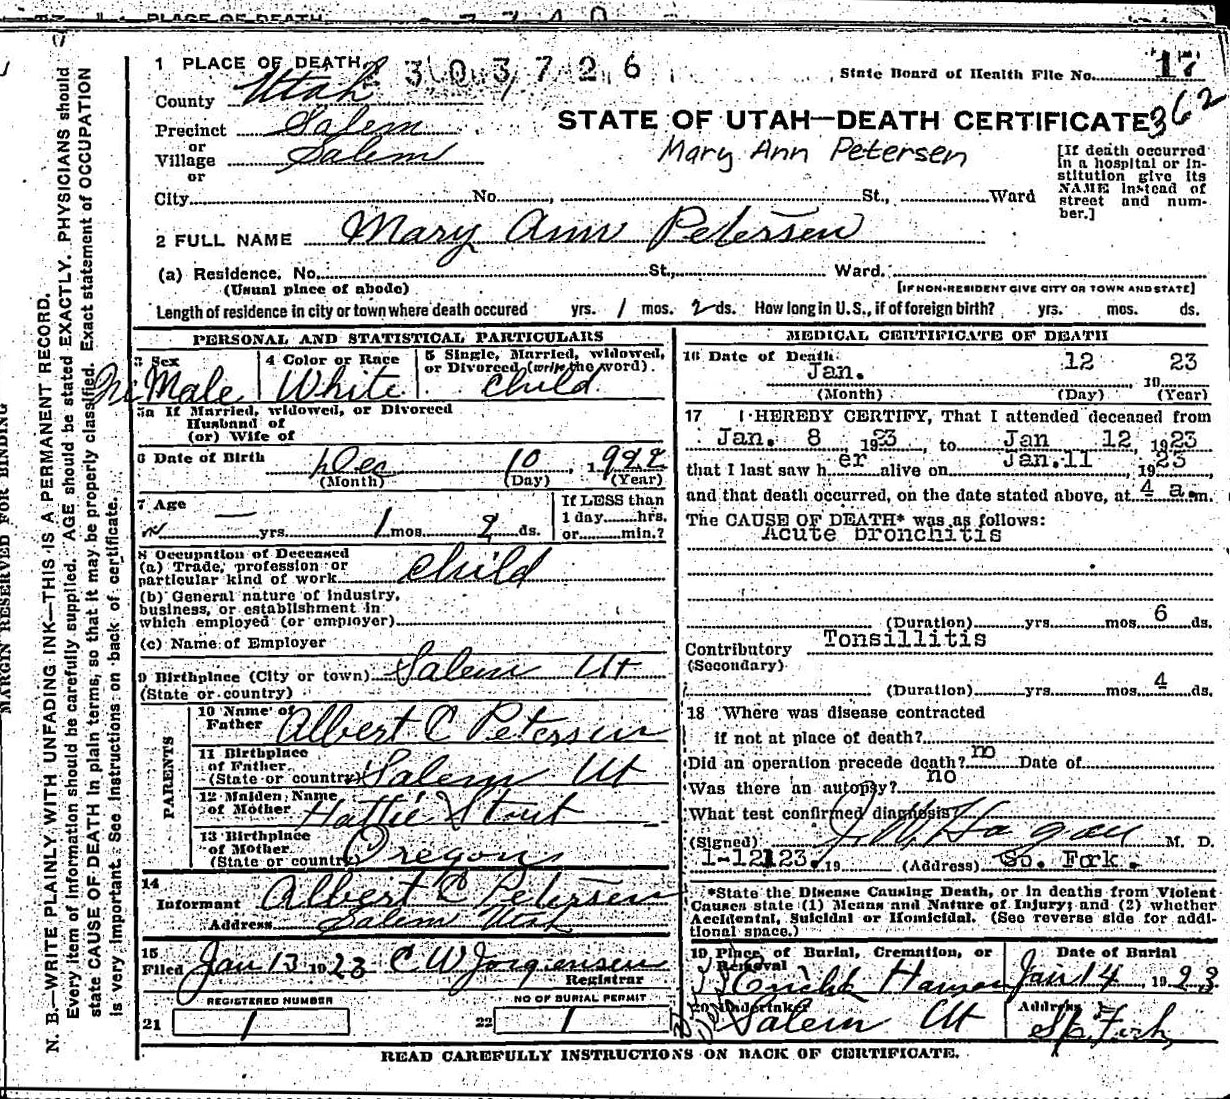 PLACE OF DEATH
1 PLACE OF DEATH 303726
State Board of Health File No. 17
County Utah
362
STATE OF UTAH—DEATH CERTIFICATE
Precinct Salem
or
Village Salem
or
Mary Ann Petersen
[If death occurred in a hospital or institution give its NAME instead of street and number.]
City No. St., Ward
2 FULL NAME Mary Ann Petersen
(a) Residence. No. St., Ward.
(Usual place of abode) [IF NON-RESIDENT GIVE CITY OR TOWN AND STATE]
Length of residence in city or town where death occured yrs. 1 mos. 2 ds. How long in U.S., if of foreign birth? yrs. mos. ds.
PERSONAL AND STATISTICAL PARTICULARS
3 Sex
Male
4 Color or Race
White
5 Single, Married, widowed,
or Divorced (write the word).
child
5a If Married, widowed, or Divorced
Husband of
(or) Wife of
6 Date of Birth Dec 10, 1922
(Month) (Day) (Year)
7 Age
— yrs. 1 mos. 2 ds.
If LESS than
1 day hrs.
or min.?
8 Occupation of Deceased
(a) Trade, profession or
particular kind of work child
(b) General nature of industry,
business, or establishment in
which employed (or employer)
(c) Name of Employer
9 Birthplace (City or town) Salem Ut
(State or country)
PARENTS
10 Name of
Father Albert C Petersen
11 Birthplace
of Father
(State or country) Salem Ut
12 Maiden Name
of Mother Hattie Stout
13 Birthplace
of Mother
(State or country) Oregon
14
Informant Albert C Petersen
Address Salem Utah
15
Filed Jan 13 1923 C W Jorgensen
Registrar
REGISTERED NUMBER NO OF BURIAL PERMIT
21 1 22 1
MEDICAL CERTIFICATE OF DEATH
16 Date of Death
Jan. 12 23
(Month) (Day) (Year)
17 I HEREBY CERTIFY, That I attended deceased from
Jan. 8 1923, to Jan 12 1923
that I last saw her alive on Jan. 11 1923
and that death occurred, on the date stated above, at 4 a.m.
The CAUSE OF DEATH* was as follows:
Acute bronchitis
(Duration) yrs. mos. 6 ds.
Contributory Tonsillitis
(Secondary)
(Duration) yrs. mos. 4 ds.
18 Where was disease contracted
if not at place of death?
Did an operation precede death? no Date of
Was there an autopsy? no
What test confirmed diagnosis
(Signed) J. W. Hagan M. D.
1-12 123. 19 (Address) Sp. Fork.
*State the Disease Causing Death, or in deaths from Violent
Causes state (1) Means and Nature of Injury; and (2) whether
Accidental, Suicidal or Homicidal. (See reverse side for additional space.)
19 Place of Burial, Cremation, or
Removal
Date of Burial
Jan 14, 1923
20 Undertaker
Salem Ut
Address
Sp. Fork
READ CAREFULLY INSTRUCTIONS ON BACK OF CERTIFICATE.
MARGIN RESERVED FOR BINDING
N. B.—WRITE PLAINLY WITH UNFADING INK—THIS IS A PERMANENT RECORD.
Every item of information should be carefully supplied. AGE should be stated EXACTLY. PHYSICIANS should
state CAUSE OF DEATH in plain terms, so that it may be properly classified. Exact statement of OCCUPATION
is very important. See instructions on back of certificate.